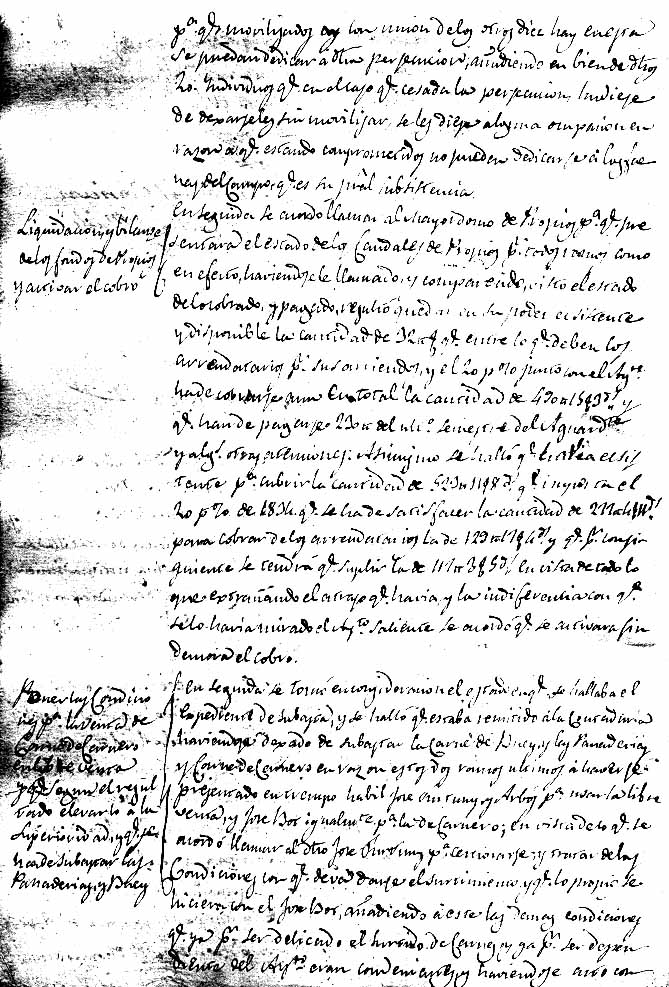 pª. qᵉ. movilizados con la union de los otros diez hay en esta
se puedan dedicar á dtra. persecucion, añadiendo en bien de dthos
20. Individuos qᵉ. en el caso qᵉ. cesada la persecucion, hubiese
de dexarseles sin movilizar, se les diese alguna ocupacion en
razon a qᵉ. estando comprometidos no pueden dedicarse á las fae
nas del Campo, qᵉ. es su pral. subsistencia.
Liquidacion y balanse
de los fondos de Propios
y activar el cobro
En seguida se acordo llamar al Mayordomo de Propios pª. qᵉ. pre
sentara el estado de los Caudales de Propios pʳ. todos ramos como
en efecto, haviendosele llamado, y compareciendo, visto el estado
de lo cobrado, y pagado, resultó quedar en su poder existente
y disponible la cantidad de qᵉ. entre lo qᵉ. deben los
arrendatarios pʳ. sus arriendos, y el 20 p%o junto con el Aytº.
ha de cobrarse suma En total la cantidad de y
qᵉ. han de pagarse del ultº. semestre del Aguardte.
y algs. otras atenciones. Asimismo se halló qᵉ. exis
tente pª. cubrir la cantidad de qᵉ. importa el
20 p%o de 1834. qᵉ. se ha de satisfacer la cantidad de
para cobrar de los arrendatarios la de y qᵉ. pʳ. consi
guiente se tendrá qᵉ. suplir la de En vista de todo lo
que extrañando el atraso qᵉ. havia, y la indiferencia con qᵉ.
se lo havia mirado el Aytº. saliente se acordó qᵉ. se activara sin
demora el cobro.
Poner las Condicio
nes pª. la venta de
Carne de Carnero
en libre venta
y qᵉ. segun el resul
tado elevarlo á la
Superioridad, y qᵉ. se
haca de subastar las
Panaderias, y Buey
En seguida se tomó en consideracion el estado en qᵉ. se hallaba el
Expediente de subastas, y se halló qᵉ. estaba remitido á la Contaduria
haviendose dexado de subastar la Carne de Buey, las Panaderias
y Carne de Carnero en razon estos dos ramos ultimos á haverse
presentado en tiempo habil José Antuny, y Arbos pª. usar la libre
venta, y José Bos igualmente pª. la de Carnero; en vista de lo qᵉ. se
acordó llamar al dtho José Antuny pª. cerciorarse, y tratar de las
Condiciones con qᵉ. devia darse el surtimiento, y qᵉ. lo propio se
hiciera con el José Bos, añadiendo á este las demas condiciones
qᵉ. ya pʳ. ser delicado el surtido de Carnes, y ya pʳ. ser depen
diente del Aytº. eran convenientes, y haviendose con